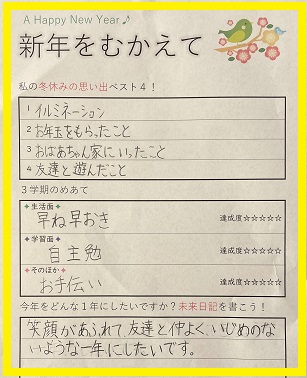 A Happy New Year♪
新年をむかえて
私の冬休みの思い出ベスト4!
1 イルミネーション
2 お年玉をもらったこと
3 おばあちゃん家にいったこと
4 友達と遊んだこと
3学期のめあて
✦生活面✦
早ね早おき 達成度☆☆☆☆☆
✦学習面✦
自主勉 達成度☆☆☆☆☆
✦そのほか✦
お手伝い 達成度☆☆☆☆☆
今年をどんな1年にしたいですか?未来日記を書こう!
笑顔があふれて、友達と仲よく、いじめのな
いような一年にしたいです。